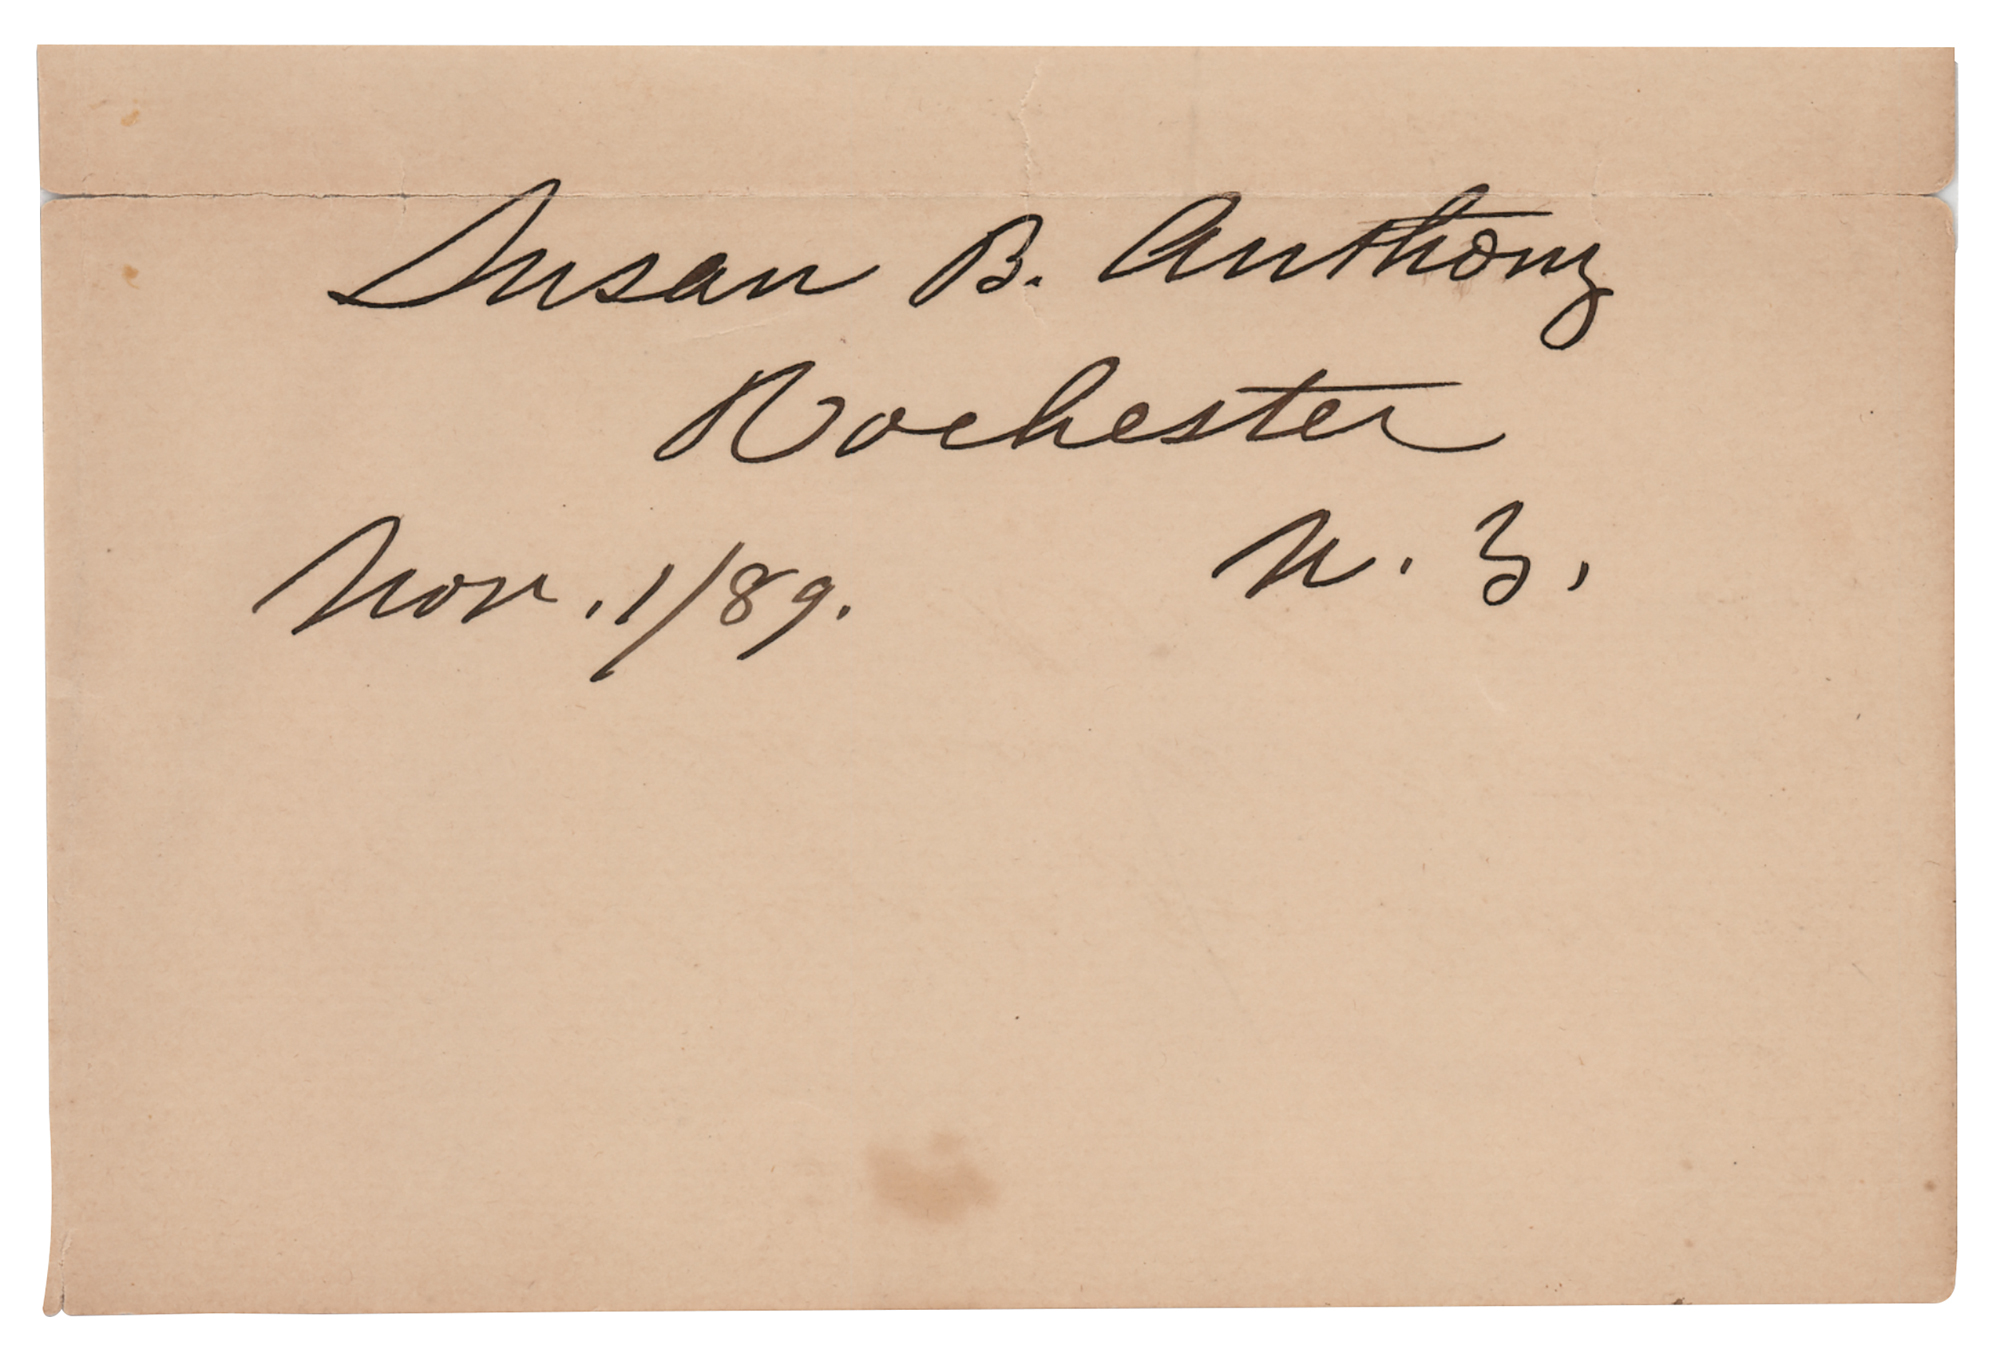 Susan B. Anthony
Rochester
N. Y.
Nov. 1/89.